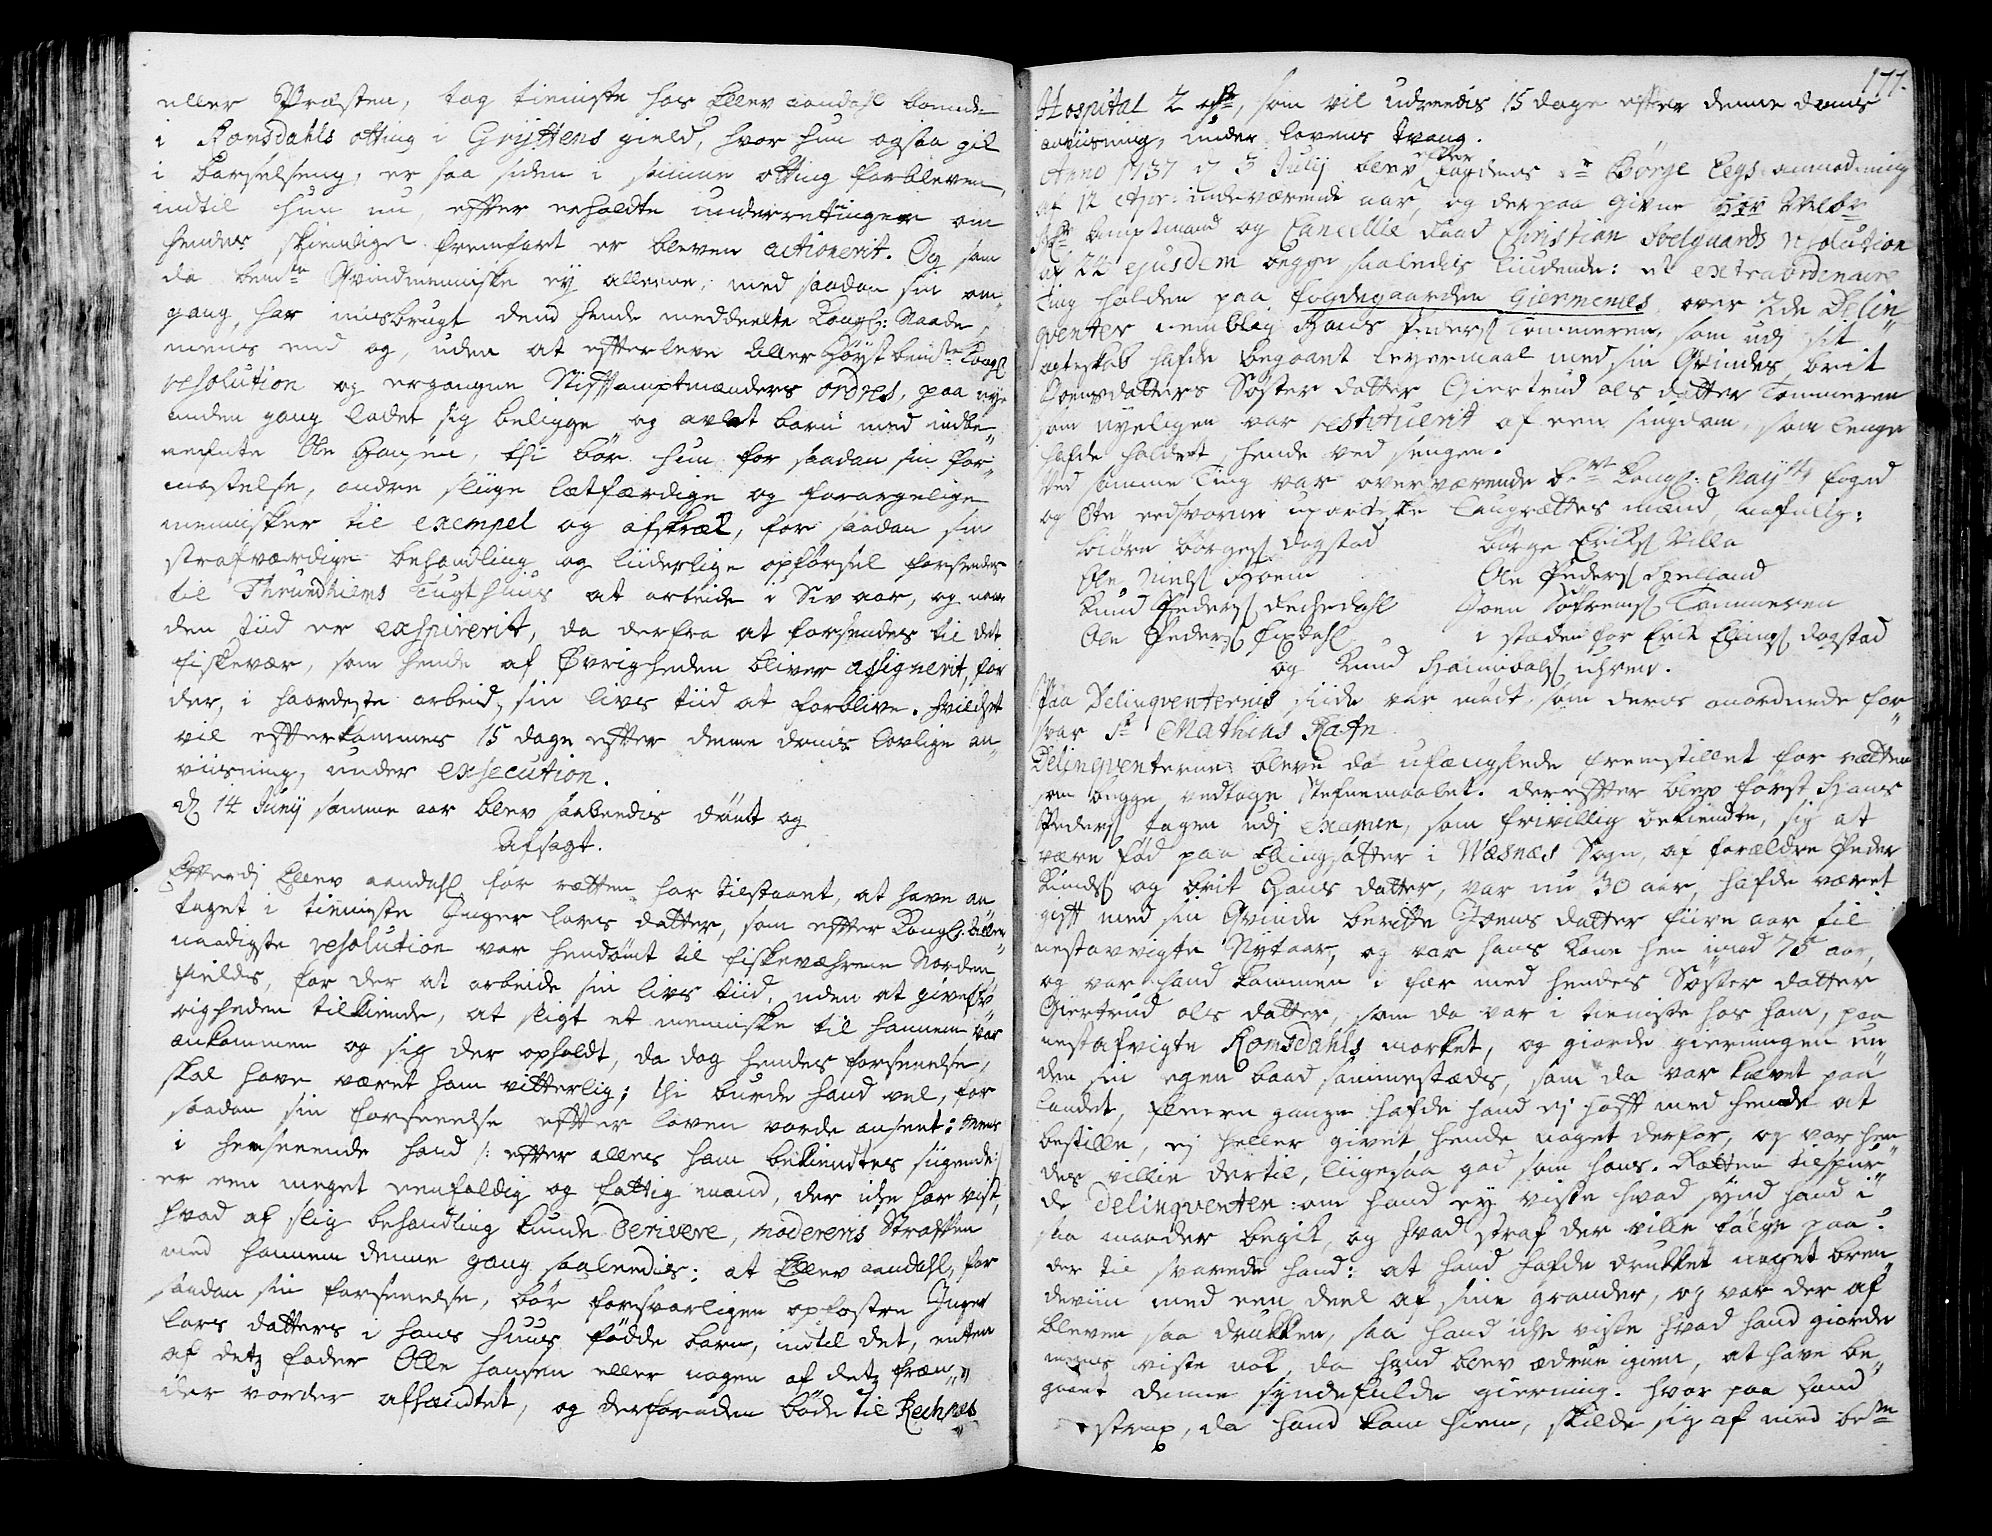 eller Præsten, tog tieniste hos Ellev aandahl boende
i Romsdahls otting i Gryttens gield, hvor hun ogsaa gik
i barselseng, er saa siden i samme otting forbleven,
indtil hun nu, efter erholdte underretninger om
hendes skiendige fremfart er bleven actionerit. Og som
da bem.te Qvindmenniske ey allene, med saadan sin om¬
gang, har misbrugt dend hende meddeelte Kongl: Naade,
mens end og, uden at efterleve Aller Høyst bem.te Kongl
resolution og ergangne Stiftamptmænders ordres, paa nye
anden gang ladet sig beligge og avlet barn med indbe¬
nefnte Ole Hansen, thi bør hun for saadan sin for¬
mastelse, andre sliige letfærdige og forargelige
mennisker til exempel og afskræk, for saadan sin
strafværdige behandling og liiderlige opførsel forsendes
til Thrundhiems Tugthuus at arbeide i Siv aar, og naar
den tiid er exspirerit, da derfra at forsendes til det
fiskevær, som hende af Øvrigheden bliver assignerit, for
der, i haardeste arbeid, sin livs tiid at forblive. hvilchet
vil efterkommes 15 dage efter denne doms lovlige an¬
viisning, under execution.
d 14 Junij samme aar blev saaleedis dømt og
Afsagt.
Efterdj Ellev aandahl for rætten har tilstaaet, at have an
taget i tieniste Inger lars datter, som efter Kongl. Aller
naadigste resolution var hendømt til fiskevæhrene Norden
fields, for der at arbeide sin livs tiid, uden at give Øv
righeden tilkiende, at sligt et menniske til hannem var
ankommen og sig der opholdt, da dog hendes forseelse,
skal have været ham vitterlig; thi burde hand vel, for
saadan sin forseelse efter loven vorde anseet: Mens
i henseende hand /: efter alles ham bekiendtes siigende:/
er een meget eenfoldig og fattig mand, der iche har vist,
hvad af slig behandling kunde Derivere, modereris Straffen
med hannem denne gang saaleedis; at Ellev aandahl, for
saadan sin forseelse, bør forsvarligen opfostre Inger
lars datters i hans huus fødde barn, indtil det, enten
af detz fader Olle Hansen eller nogen af detz fræn¬
der vorder afhændtet, og desforuden bøde til Rechnes
177.
Hospital 2 rd, som vil udreedis 15 dage efter denne doms
anviisning, under lovens tvang.
Anno 1737 d 3 Julij blev efter fogdens Sr Børge Eegs anmodning
af 12 Apr: indeværende aar, og derpaa givne Hør Velbr
Hr amptmand og Cancellie Raad Christian Soelgaards resolution
af 22 ejusdem begge saaledis liudende: et extraordinaire
Ting holden paa fogdegaarden Giermenes over 2de Delin
qventer nemblig Hans Peders Tommeren, som udj sit
egteskab hafde begaaet leyermaal med sin Qvindes brit
Joensdatters Søster datter Giertrud ols datter Tommeren
som nyeligen var restituerit af een siugdom, som lenge
hafde holdet hende ved sengen.
Ved samme Ting var overværende br.te Kongl: May.ts foged
og Otte eedsvorne upartiske Laugrættes mænd, nafnlig:
Biørn Børges dogstad Børge Eriks Villa
Ole Niels Hoem Ole Peders Hielland
Knud Peders Rechedahl Joen Tommeren
Ole Peders fixdahl i steden for Erik Ellings dogstad
og Knud
Paa Delinqventernis siide var mødt, som deris anordnede for¬
svar Sr Mathias Rafn
Delinqventerne bleve da ufængslede fremstillet for rætten
som begge vedtoge Stefnemaalet. derefter blev først Hans
Peders tagen udj examen, som frivillig bekiendte, sig at
være fød paa Ellingsætter i Wæsnæs Sogn, af forældre Peder
Knuds og brit Hans datter, var nu 30 aar, hafde været
gift med sin Qvinde beritte Joens datter fiire aar til
nestavvigte Nytaar, og var hans kone hen imod 70 aar,
og var hand kommen i fær med hendes Søster datter
Giertrud ols datter, som da var i tieniste hos ham, paa
nestafvigte Romsdahls market, og giorde gierningen un
den sin egen baad sammesteds, som da var kavet paa
landet, fleere gange hafde hand ej haft med hende at
bestille, ej heller givet hende noget derfor, og var hen
des villie dertil, liigesaa god som hans. Rætten tilspur¬
de Delinqventen: om hand ey viste hvad synd hand i
saa maader begik, og hvad straf der ville følge paa?
der til svarede hand: at hand hafde drukket noget bren
deviin med een deel af sine grander, og var der af
bleven saa drukken, saa hand iche viste hvad hand giorde
mens viste nok, da hand blev ædrue igien, at have be¬
gaaet denne syndefulde gierning. hvor paa hand
strax, da hand kom hiem, skilde sig af med bem.te